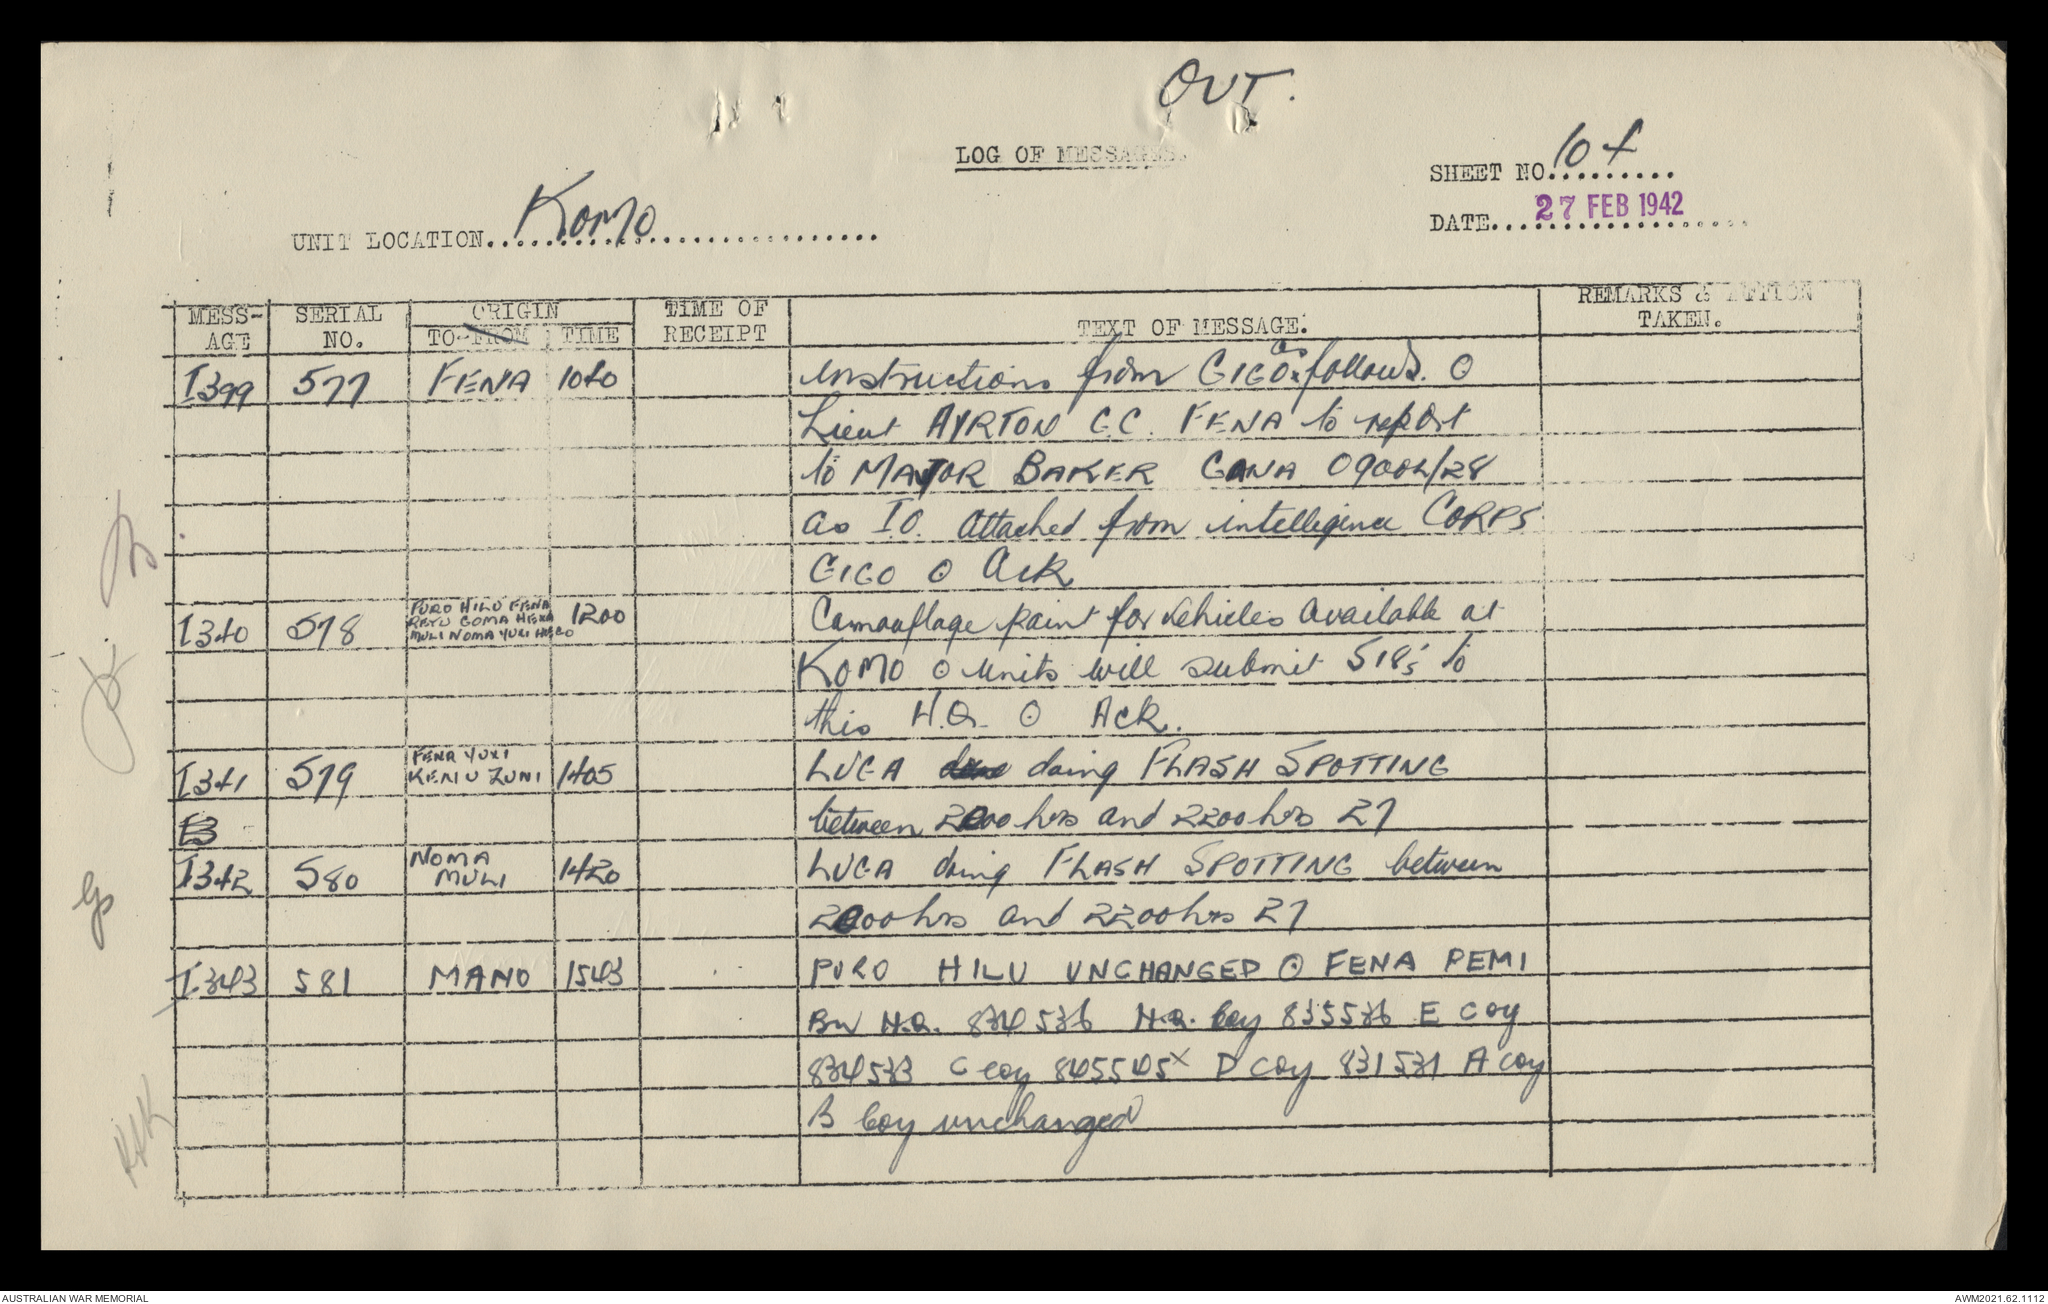 OUT.
LOG OF MESSAGES.
SHEET NO. 104
UNIT LOCATION Komo
DATE 27 FEB 1942
MESS-AGE SERIAL NO. ORIGIN TO-FROM TIME TIME OF RECEIPT TEXT OF MESSAGE. REMARKS & ACTION TAKEN.
I399 577 FENA 1040 Instructions from GIGO as follows. ⊙
Lieut AYRTON C.C. FENA to report
to MAJOR BAKER GANA 0900h/28
as I.O. attached from intelligence CORPS
GIGO ⊙ Ack
I340 578 PURO HILU FENA 1200 Camouflage paint for vehicles available at
RETU GOMA HEXA
MULI NOMA YURI
KOMO ⊙ units will submit 518's to
this H.Q. ⊙ Ack.
I341 579 FENA YURI
KEMU ZUNI 1405 LUGA doing FLASH SPOTTING
between 2000 hrs and 2200 hrs 27
I342 580 NOMA
MULI 1420 LUGA doing FLASH SPOTTING between
2000 hrs and 2200 hrs 27
I343 581 MANO 1543 PURO HILU UNCHANGED ⊙ FENA PEMI
Bn H.Q. 834536 H.Q. Coy 835536 E Coy
834533 C coy 845545x D coy 831531 A coy
B Coy unchanged
AUSTRALIAN WAR MEMORIAL
AWM2021.62.1112